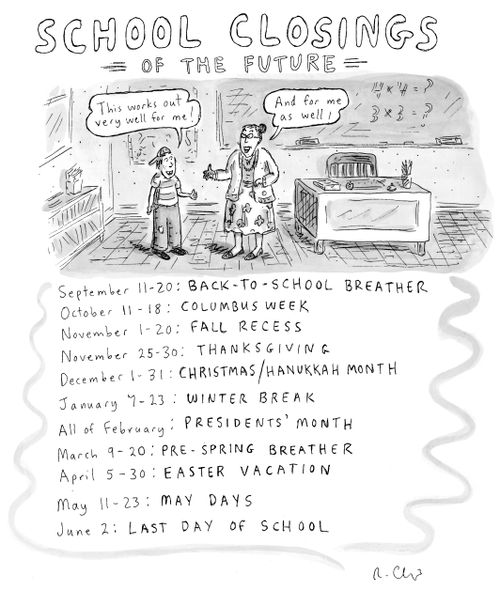 SCHOOL CLOSINGS
OF THE FUTURE
This works out
very well for me!
And for me
as well!
September 11-20: BACK-TO-SCHOOL BREATHER
October 11-18: COLUMBUS WEEK
November 1-20: FALL RECESS
November 25-30: THANKSGIVING
December 1-31: CHRISTMAS/HANUKKAH MONTH
January 7-23: WINTER BREAK
All of February: PRESIDENTS' MONTH
March 9-20: PRE-SPRING BREATHER
April 5-30: EASTER VACATION
May 11-23: MAY DAYS
June 2: LAST DAY OF SCHOOL